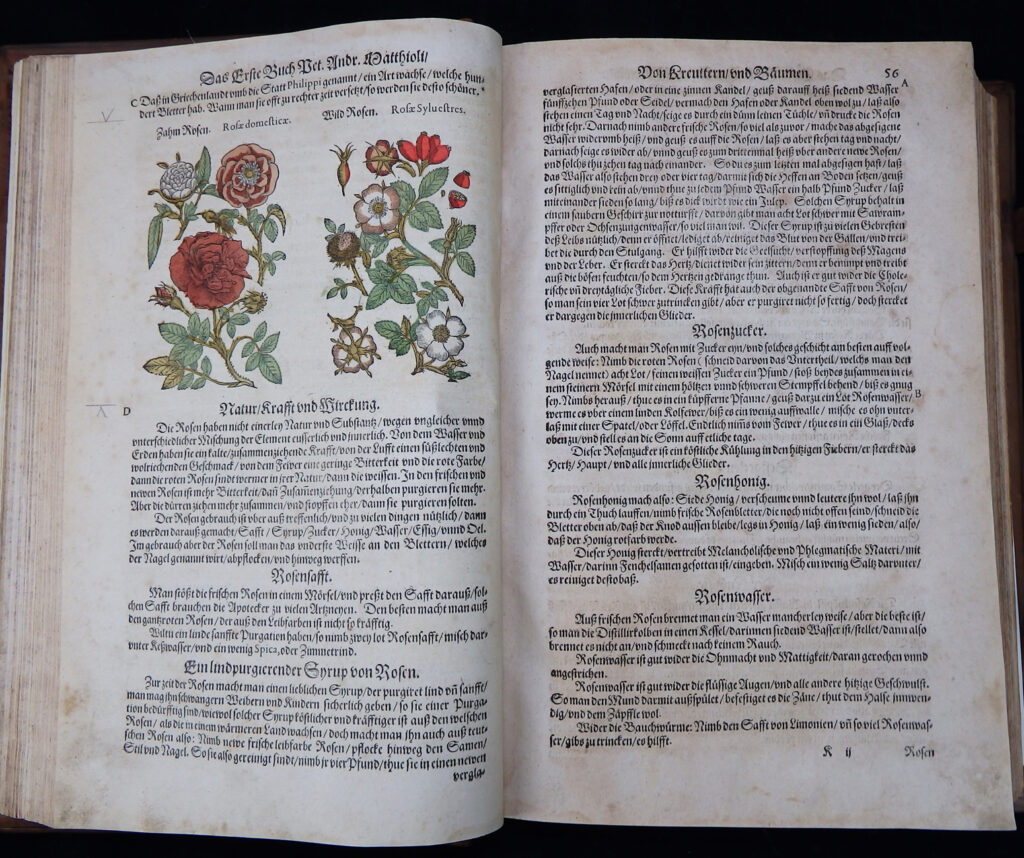 Das Erste Buch Pet. Andr. Matthioli/
C Daß in Griechenlandt vmb die Statt Philippi genannt/ ein Art wachse/ welche hun-
dert Bletter hab. Wann man sie offt zu rechter zeit versetzt/ so werden sie desto schöner.
Zahm Rosen. Rosæ domesticæ.
Wild Rosen. Rosæ Syluestres.
D Natur/ Krafft vnd Wirckung.
Die Rosen haben nicht einerley Natur vnd Substantz/ wegen vngleicher vnnd
vnterschiedlicher Mischung der Element eusserlich vnd innerlich. Von dem Wasser vnd
Erden haben sie ein kalte/ zusammenziehende Krafft/ von der Lufft einen süßlechten vnd
wolriechenden Geschmack/ von dem Fewer eine geringe Bitterkeit vnd die rote Farbe/
dann die roten Rosen sindt wermer in jrer Natur/ dann die weissen. In den frischen vnd
newen Rosen ist mehr Bitterkeit/ dañ Zusamenziehung/ derhalben purgieren sie mehr.
Aber die dürren ziehen mehr zusammen/ vnd stopffen eher/ dann sie purgieren solten.
Der Rosen gebrauch ist vber auß treffentlich/ vnd zu vielen dingen nützlich/ dann
es werden darauß gemacht/ Safft/ Syrup/ Zucker/ Honig/ Wasser/ Essig/ vnnd Oel.
Im gebrauch aber der Rosen soll man das vnderste Weisse an den Blettern/ welches
der Nagel genannt wirt/ abpflocken/ vnd hinweg werffen.
Rosensafft.
Man stößt die frischen Rosen in einem Mörsel/ vnd preßt den Safft darauß/ sol-
chen Safft brauchen die Apotecker zu vielen Artzneyen. Den besten macht man auß
den gantzroten Rosen/ der auß den Leibfarben ist nicht so kräfftig.
Wiltu ein linde sanffte Purgation haben/ so nimb zwey lot Rosensafft/ misch dar-
vnter Keßwasser/ vnd ein wenig Spica, oder Zimmetrind.
Ein lindpurgierender Syrup von Rosen.
Zur zeit der Rosen macht man einen lieblichen Syrup/ der purgiret lind vñ sanfft/
man mag jhn schwangern Weibern vnd Kindern sicherlich geben/ so sie einer Purga-
tion bedürfftig sind/ wiewol solcher Syrup köstlicher vnd kräfftiger ist auß den welschen
Rosen/ als die in einem wärmeren Land wachsen/ doch macht man jhn auch auß teut-
schen Rosen also: Nimb newe frische leibfarbe Rosen/ pflocke hinweg den Samen/
Stil vnd Nagel. So sie also gereinigt sindt/ nimb jr vier Pfund/ thue sie in einen newen
vergla-
Von Kreuttern/ vnd Bäumen. 56
verglasierten Hafen/ oder in eine zinnen Kandel/ geuß darauff heiß siedend Wasser A
fünffzehen Pfund oder Seidel/ vermach den Hafen oder Kandel oben wol zu/ laß also
stehen einen Tag vnd Nacht/ seige es durch ein dünn leinen Tüchle/ vñ drucke die Rosen
nicht sehr. Darnach nimb andere frische Rosen/ so viel als zuvor/ mache das abgesigene
Wasser widerumb heiß/ vnd geuß es auff die Rosen/ laß es aber stehen tag vnd nacht/
darnach seige es wider ab/ vnnd geuß es zum drittenmal heiß vber andere newe Rosen/
vnd solchs thu zehen tag nach einander. So du es zum letzten mal abgesigen hast/ laß
das Wasser also stehen drey oder vier tag/ darmit sich die Hefen an Boden setzen/ geuß
es sittiglich vnd rein ab/ vnnd thue zu jedem Pfund Wasser ein halb Pfund Zucker/ laß
miteinander sieden so lang/ biß es dick wirdt wie ein Julep. Solchen Syrup behalt in
einem saubern Geschirr zur notturfft/ darvon gibt man acht Lot schwer mit Sawram-
pffer oder Ochsenzungenwasser/ so viel man wil. Dieser Syrup ist zu vielen Gebresten
deß Leibs nützlich/ denn er öffnet/ lediget ab/ reiniget das Blut von der Gallen/ vnd trei-
bet die durch den Stulgang. Er hilfft wider die Geelsucht/ verstopffung deß Magens
vnd der Leber. Er sterckt das Hertz/ dienet wider sein zittern/ denn er benimpt vnd treibt
auß die bösen feuchten/ so dem Hertzen gedrange thun. Auch ist er gut wider die Chole-
rische vñ dreytägliche Fieber. Diese Krafft hat auch der obgenandte Safft von Rosen/
so man sein vier Lot schwer zutrincken gibt/ aber er purgiret nicht so fertig/ doch stercket
er dargegen die jnnerlichen Glieder.
Rosenzucker.
Auch macht man Rosen mit Zucker eyn/ vnd solches geschicht am besten auff vol-
gende weise: Nimb die roten Rosen (schneid darvon das Vntertheil/ welchs man den
Nagel nennet) acht Lot/ feinen weissen Zucker ein Pfund/ stoß beydes zusammen in ei-
nem steinern Mörsel mit einem höltzen vnd schweren Stempffel behend/ biß es gnug
sey. Nimbs herauß/ thue es in ein küpfferne Pfanne/ geuß darzu ein Lot Rosenwasser/ B
werme es vber einem linden Kolfewer/ biß es ein wenig auffwalle/ mische es ohn vnter-
laß mit einer Spatel/ oder Löffel. Endtlich nims vom Fewer/ thue es in ein Glaß/ decks
oben zu/ vnd stell es an die Sonn auff etliche tage.
Dieser Rosenzucker ist ein köstliche Kühlung in den hitzigen Fiebern/ er sterckt das
Hertz/ Haupt/ vnd alle innerliche Glieder.
Rosenhonig.
Rosenhonig mach also: Siede Honig/ verscheume vnnd leutere jhn wol/ laß jhn
durch ein Thuch lauffen/ nimb frische Rosenbletter/ die noch nicht offen seind/ schneid die
Bletter oben ab/ daß der Knod aussen bleibe/ legs in Honig/ laß ein wenig sieden/ also/
daß der Honig rotfarb werde.
Dieser Honig sterckt/ vertreibt Melancholische vnd Phlegmatische Materi/ mit
Wasser/ darinn Fenchelsamen gesotten ist/ eingeben. Misch ein wenig Saltz darunter/
es reiniget destobaß.
Rosenwasser.
Auß frischen Rosen brennet man ein Wasser mancherley weise/ aber die beste ist/
so man die Distillirkolben in einen Kessel/ darinnen siedend Wasser ist/ stellet/ dann also
brennet es nicht an/ vnd schmeckt nach keinem Rauch.
Rosenwasser ist gut wider die Ohnmacht vnd Mattigkeit/ daran gerochen vnnd
angestrichen.
Rosenwasser ist gut wider die flüssige Augen/ vnd alle andere hitzige Geschwulst.
So man den Mund darmit außspület/ befestiget es die Zäne/ thut dem Halse innwen-
dig/ vnd dem Zäpffle wol.
Wider die Bauchwürme: Nimb den Safft von Limonien/ vñ so viel Rosenwas-
ser/ gibs zu trincken/ es hilfft.
K ij Rosen